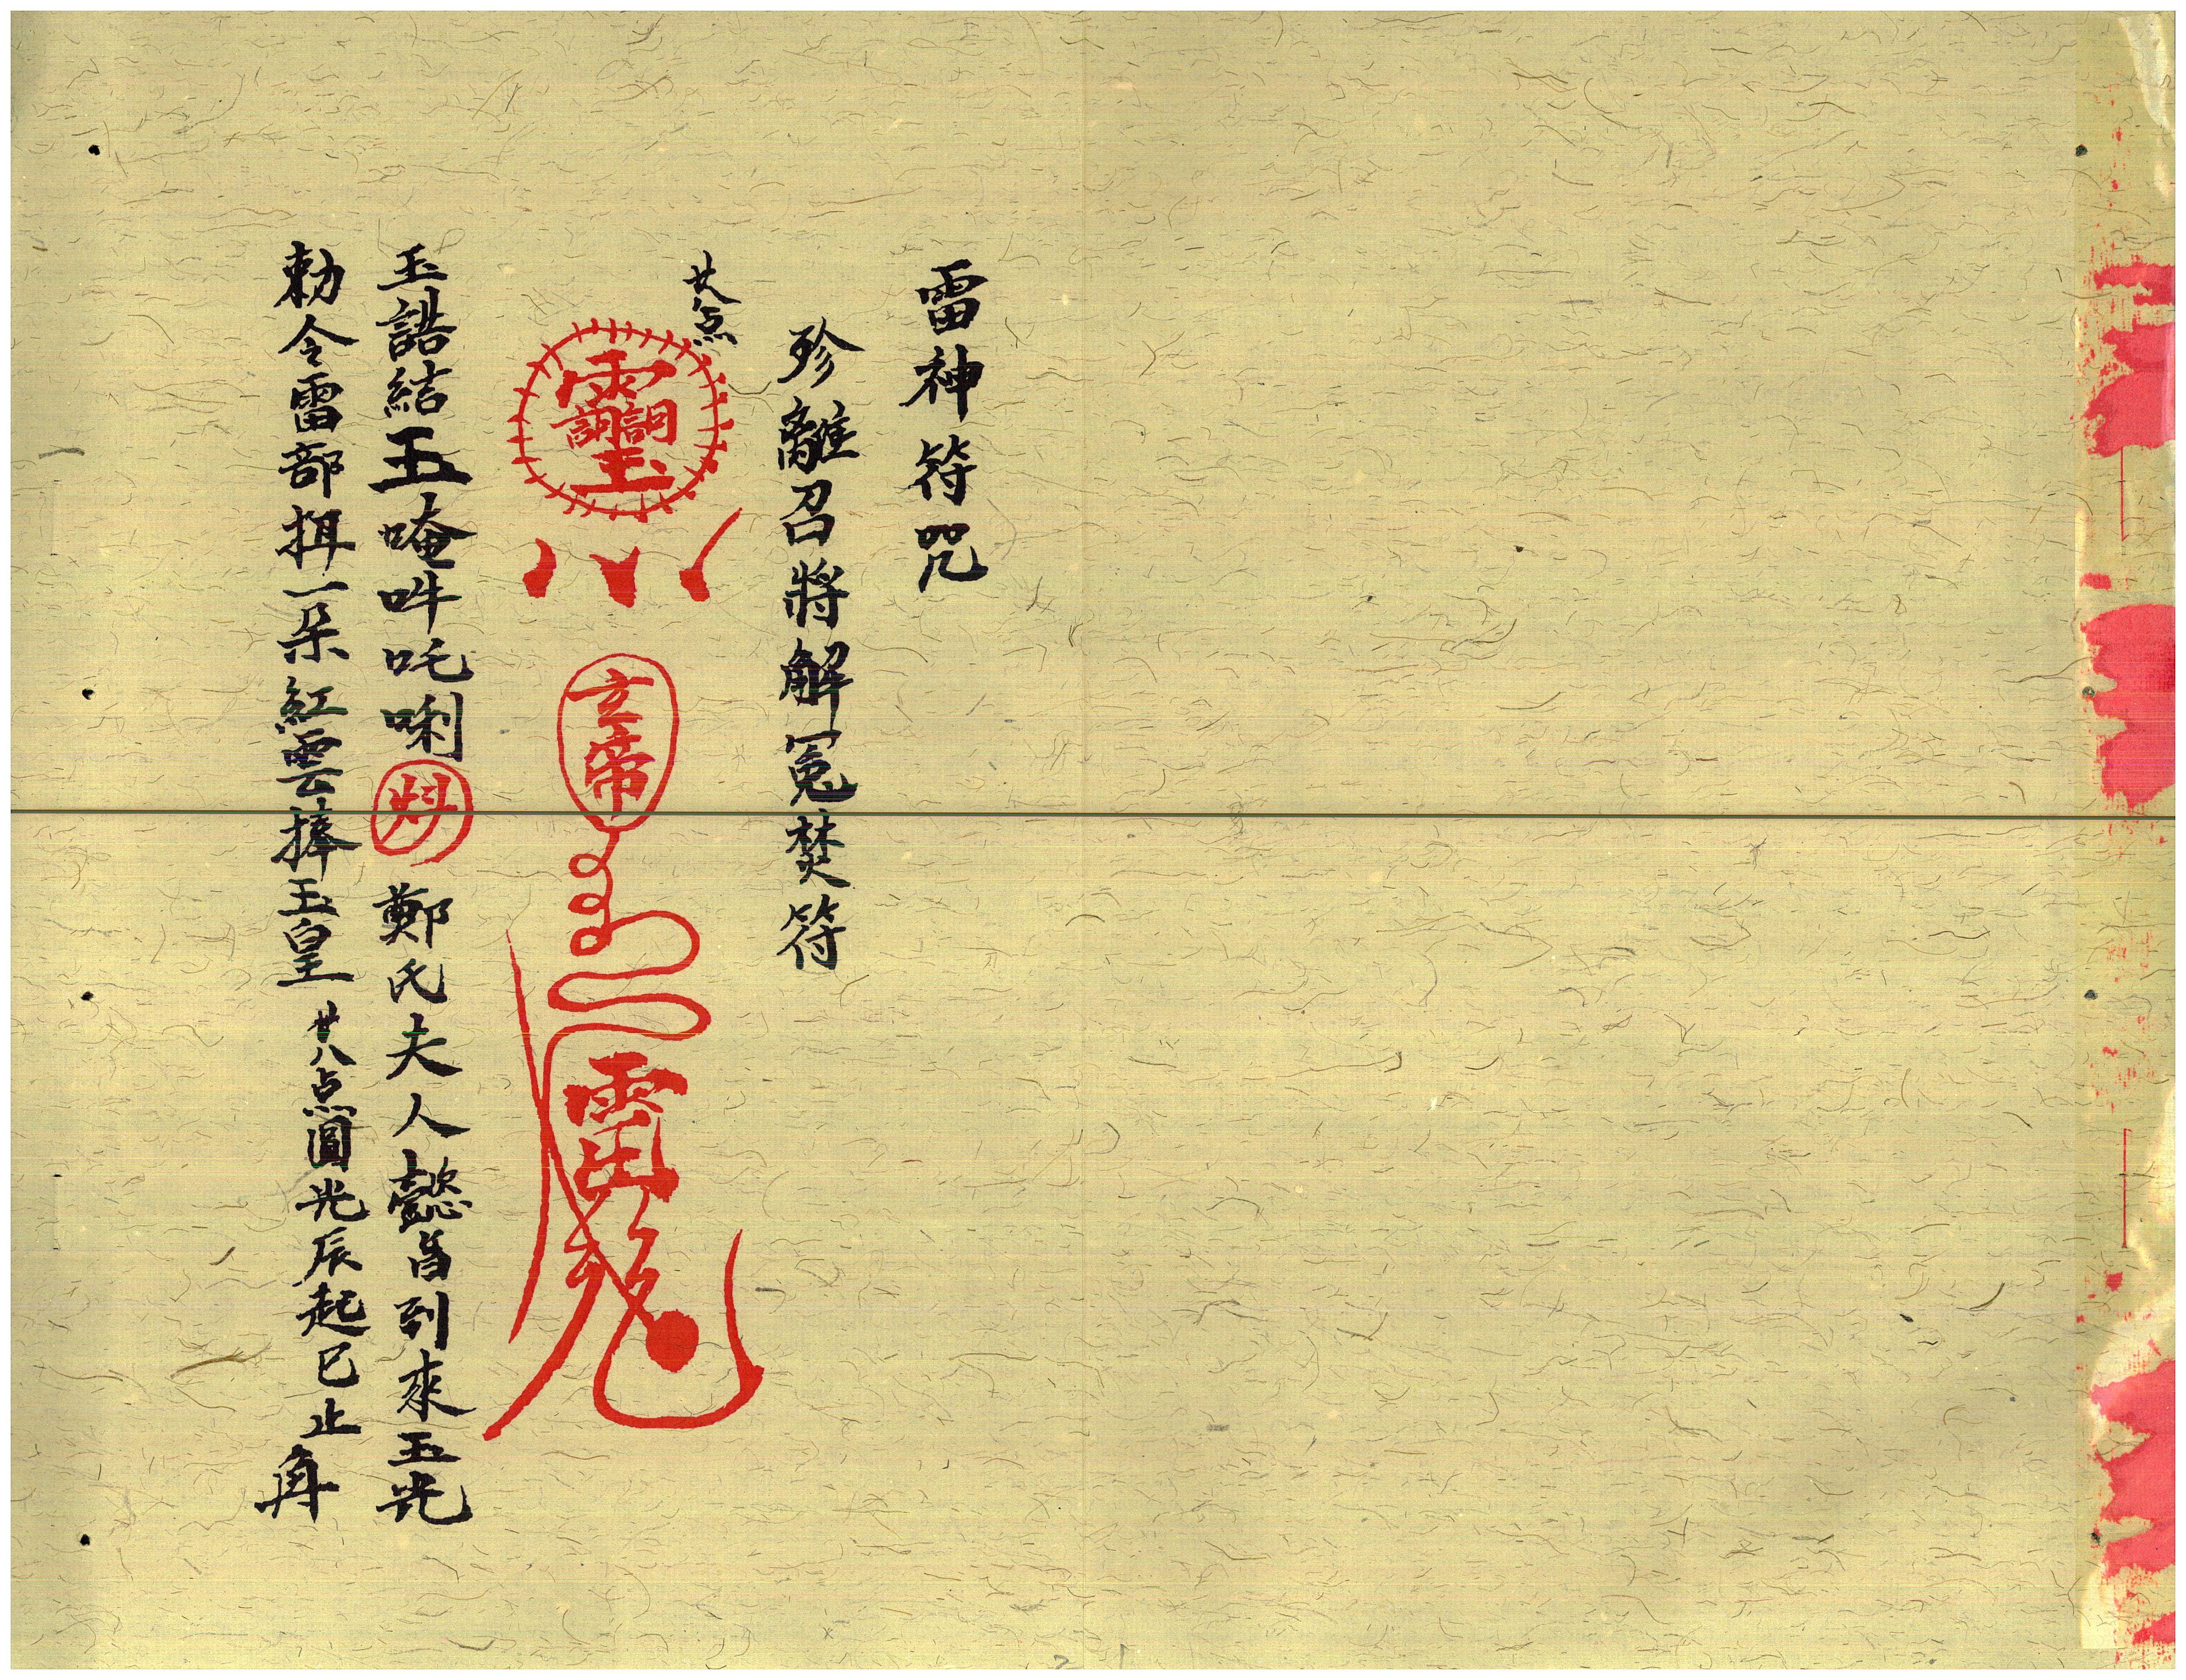 雷神符咒
珍離召將解冤焚符
廿八点
玄帝
玉誥結玉唵吽吒唎 鄭氏夫人懿旨到來玉光
勅令雷部 一朵紅雲捧玉皇 廿八点圓光辰起巳止